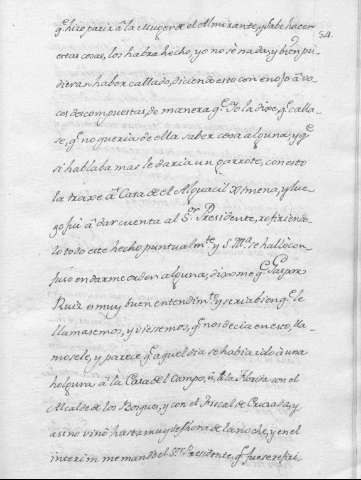 54.
q.e hizo parir à la Muger de el Almirante, y sabe hacer
estas cosas, los habra hecho, yo no sè nada, y bien pu-
dieran haber callado, diciendo esto con enojo à vo-
ces descompuestas, de manera q.e Yo la dixe, q.e calla-
se, q.e no queria de ella saber cosa alguna, y q.e
si hablaba mas le daria un garrote, con esto
la traxe à Casa de el Alguacil Ximena, y lue-
go fui à dar cuenta al S.or Presidente, refiriendo-
lo todo este hecho puntualm.te y S. Ill.ma se hallò con-
fuso en darme orden alguna, dixome q.e Gaspar
Ruiz es muy buen entendim.to y seria bien q.e le
llamasemos, y viesemos, q.e nos decia en eso, lla-
mosele, y parece q.e aquel dia se habia ido à una
holgura à la Casa del Campo, ò à la Florida con el
Alcalde de los Bosques, y con el Fiscal de Cruzada, y
asi no vino hasta muy deshora de la noche, y en el
interim me mandò el S.or Presidente, q.e fuese refiri-